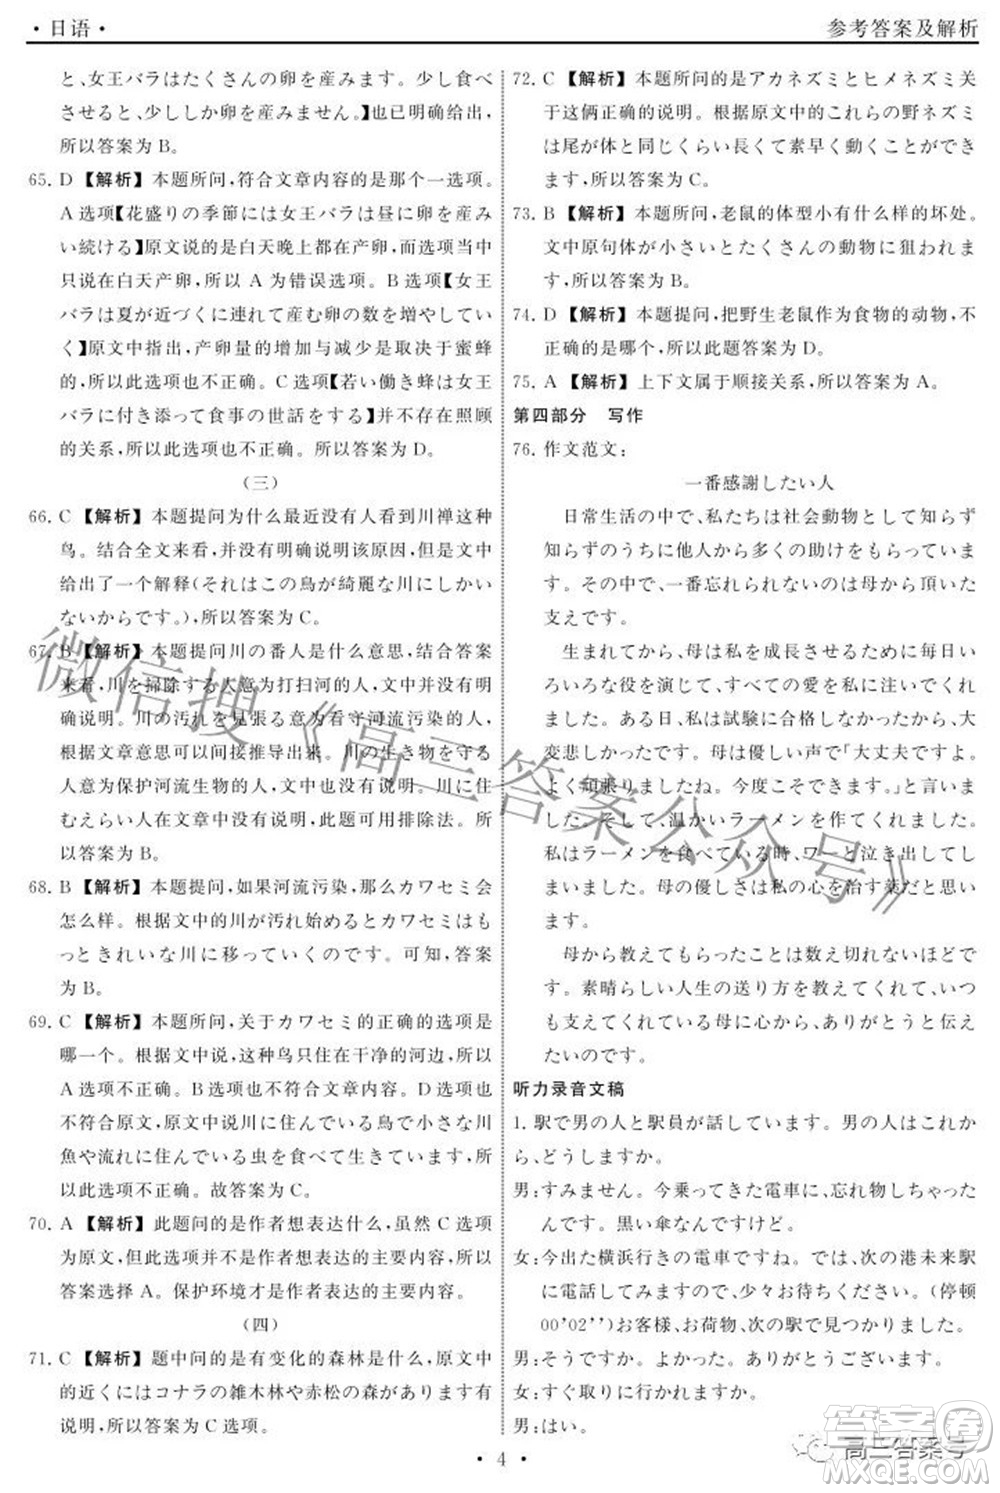 ・日语・
参考答案及解析
と、女王バラはたくさんの卵を産みます。少し食べ
させると、少ししか卵を産みません。】也已经很明显,
所以答案为 B。
65. D 【解析】本题所问,符合文章内容的是哪一选项。
A 选项【花盛りの季節には女王バラは昼に卵を産み
い続ける】原文说的是白天晚上都在产卵,而选项当中
只说在白天产卵,所以 A 为错误选项。B 选项【女王
バラは夏が近づくに連れて産む卵の数を増やしてい
く】原文当中,产卵量的增加与减少是掌握于蜜蜂的,
所以该项也不正确。C 选项【若い働き蜂は女王
バラに付き添って食事の世話をする】不存在照顾
的关系,所以此选项也不正确。所以答案为 D。
(三)
66. C 【解析】本题提问为什么最近没有人看到川禅这种
鸟。结合全文来看,并没有明确说明该原因,但是文中
给出了一个解释(それはこの鳥が綺麗な川にしかい
ないからです。),所以答案为 C。
67. B 【解析】本题提问川の番人是什么意思,结合答案
来看,川を掃除する人意为打扫河的人,文中并没有
明确说明。川の汚れを見張る意为看守河流污染的人,
根据文章意思可以间接推导出来。川の生き物を守る
人意为保护河流生物的人,并没有说明。川に住んでい
むえらい人在文章中没有说明,此题可用排除法。所
以答案为 B。
68. B 【解析】本题提问,如果河流污染,那么カワセミ会
怎么样。根据文中的川が汚れ始めるとカワセミはも
っときれいな川に移っていくのです。可知,答案
为 B。
69. C 【解析】本题所问,关于カワセミ的正确的选项是
哪一个。根据文中说,这种鸟只在干净的河边,所以
A 选项不正确。B 选项也不符合文章内容。D 选项在
文章中没有提到。原文中说川に住んでいる小さな川
魚や流れに住んでいる虫を食べて生きています,因
此选项不正确。故答案为 C。
70. A 【解析】此题问的是作者想表达什么,虽然 C 选项
为原文,但是并不是作者想表达的主要内容。所以
答案选择 A。保护环境才是作者想表达的主要内容。
(四)
71. C 【解析】题中问的是有变化的森林是什么,原文中
的近くにはコナラの雑木林や赤松の森があります有
说明,所以答案为 C 选项。
72. C 【解析】本题所问的是アカネズミとヒメネズミ关
于这俩正确的说明。根据原文中的これらの野ネズミ
は尾が体と同じくらい長くて素早く動くことができ
るのです。所以答案为 C。
73. B 【解析】本题所问,老鼠的体型小有什么样的坏处。
文中原句体が小さいとたくさんの動物に狙われま
す。所以答案为 B。
74. D 【解析】本题提问,把野生老鼠作为食物的动物,不
正确的是哪个,所以此题答案为 D。
75. A 【解析】上下文属于顺接关系,所以答案为 A。
第四部分 写作
76. 作文范文:
一番感謝したい人
日常生活の中で、私たちは社会動物として知らず
知らずのうちに他人から多くの助けをもらっていま
す。その中で、一番忘れられないのは母から頂いた
支えです。
生まれてから、母は私を成長させるために毎日い
ろいろな役を演じて、すべての愛を私に注いでくれ
ました。ある日、私は試験に合格しなかったので、大
変悲しかったです。母は優しい声で「大丈夫ですよ。
よく頑張りましたね。今度できますよ。」と言いまし
た。そして、温かいラーメンを作ってくれました。
私はラーメンを食べている時、ワーと泣き出してし
まいました。母の優しさは私の心を治す薬だと思い
ます。
母から教えてもらったことは数え切れないほどで
す。素晴らしい人生の送り方を教えてくれて、いつ
も支えてくれている母に心から、ありがとうと伝え
たいのです。
听力录音文稿
1. 駅で男の人と駅員が話しています。男の人はこれか
ら、どうしますか。
男:すみません。今乗ってきた電車に、忘れ物しちゃった
んです。黒い傘なんですけど。
女:今出た横浜行きの電車ですね。では、次の港未来駅
に電話してみますので、少々お待ちください。(停顿
00′02″)お客様、お荷物、次の駅で見つかりました。
男:そうですか。よかった。ありがとうございます。
女:すぐ取りに行かれますか。
男:はい。
・4・
微信搜《高三答案公众号》
高三答案号
答案圈
MXQE.COM